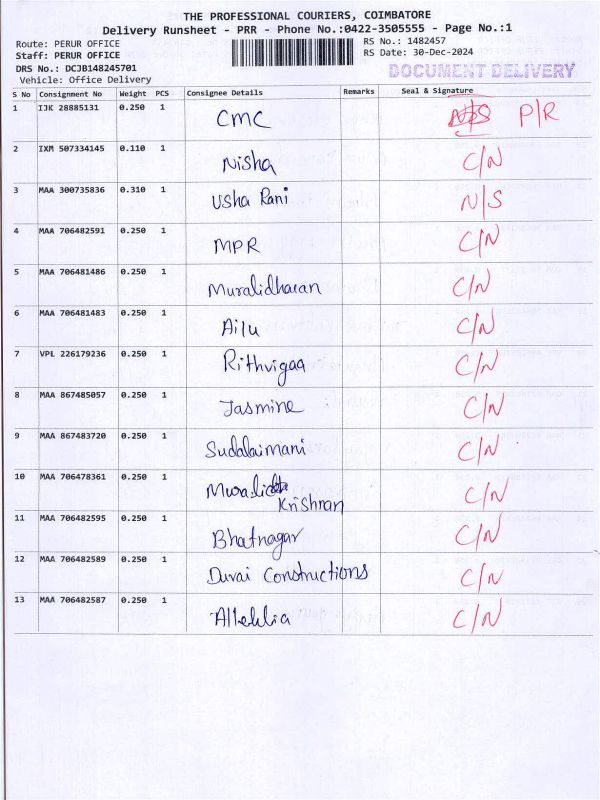 THE PROFESSIONAL COURIERS, COIMBATORE
Delivery Runsheet - PRR - Phone No.:0422-3505555 - Page No.:1
Route: PERUR OFFICE RS No.: 1482457
Staff: PERUR OFFICE RS Date: 30-Dec-2024
DRS No.: DCJB148245701 DOCUMENT DELIVERY
Vehicle: Office Delivery
S No Consignment No Weight PCS Consignee Details Remarks Seal & Signature
1 IJK 28885131 0.250 1 CMC P/R
2 IXM 507334145 0.110 1 Nisha C/N
3 MAA 300735836 0.310 1 Usha Rani N/S
4 MAA 706482591 0.250 1 MPR C/N
5 MAA 706481486 0.250 1 Muralidharan C/N
6 MAA 706481483 0.250 1 Ailu C/N
7 VPL 226179236 0.250 1 Rithvigaa C/N
8 MAA 867485057 0.250 1 Jasmine C/N
9 MAA 867483720 0.250 1 Sudalaimani C/N
10 MAA 706478361 0.250 1 C/N
Krishnan
11 MAA 706482595 0.250 1 Bhatnagar C/N
12 MAA 706482589 0.250 1 Durai Constructions C/N
13 MAA 706482587 0.250 1 C/N